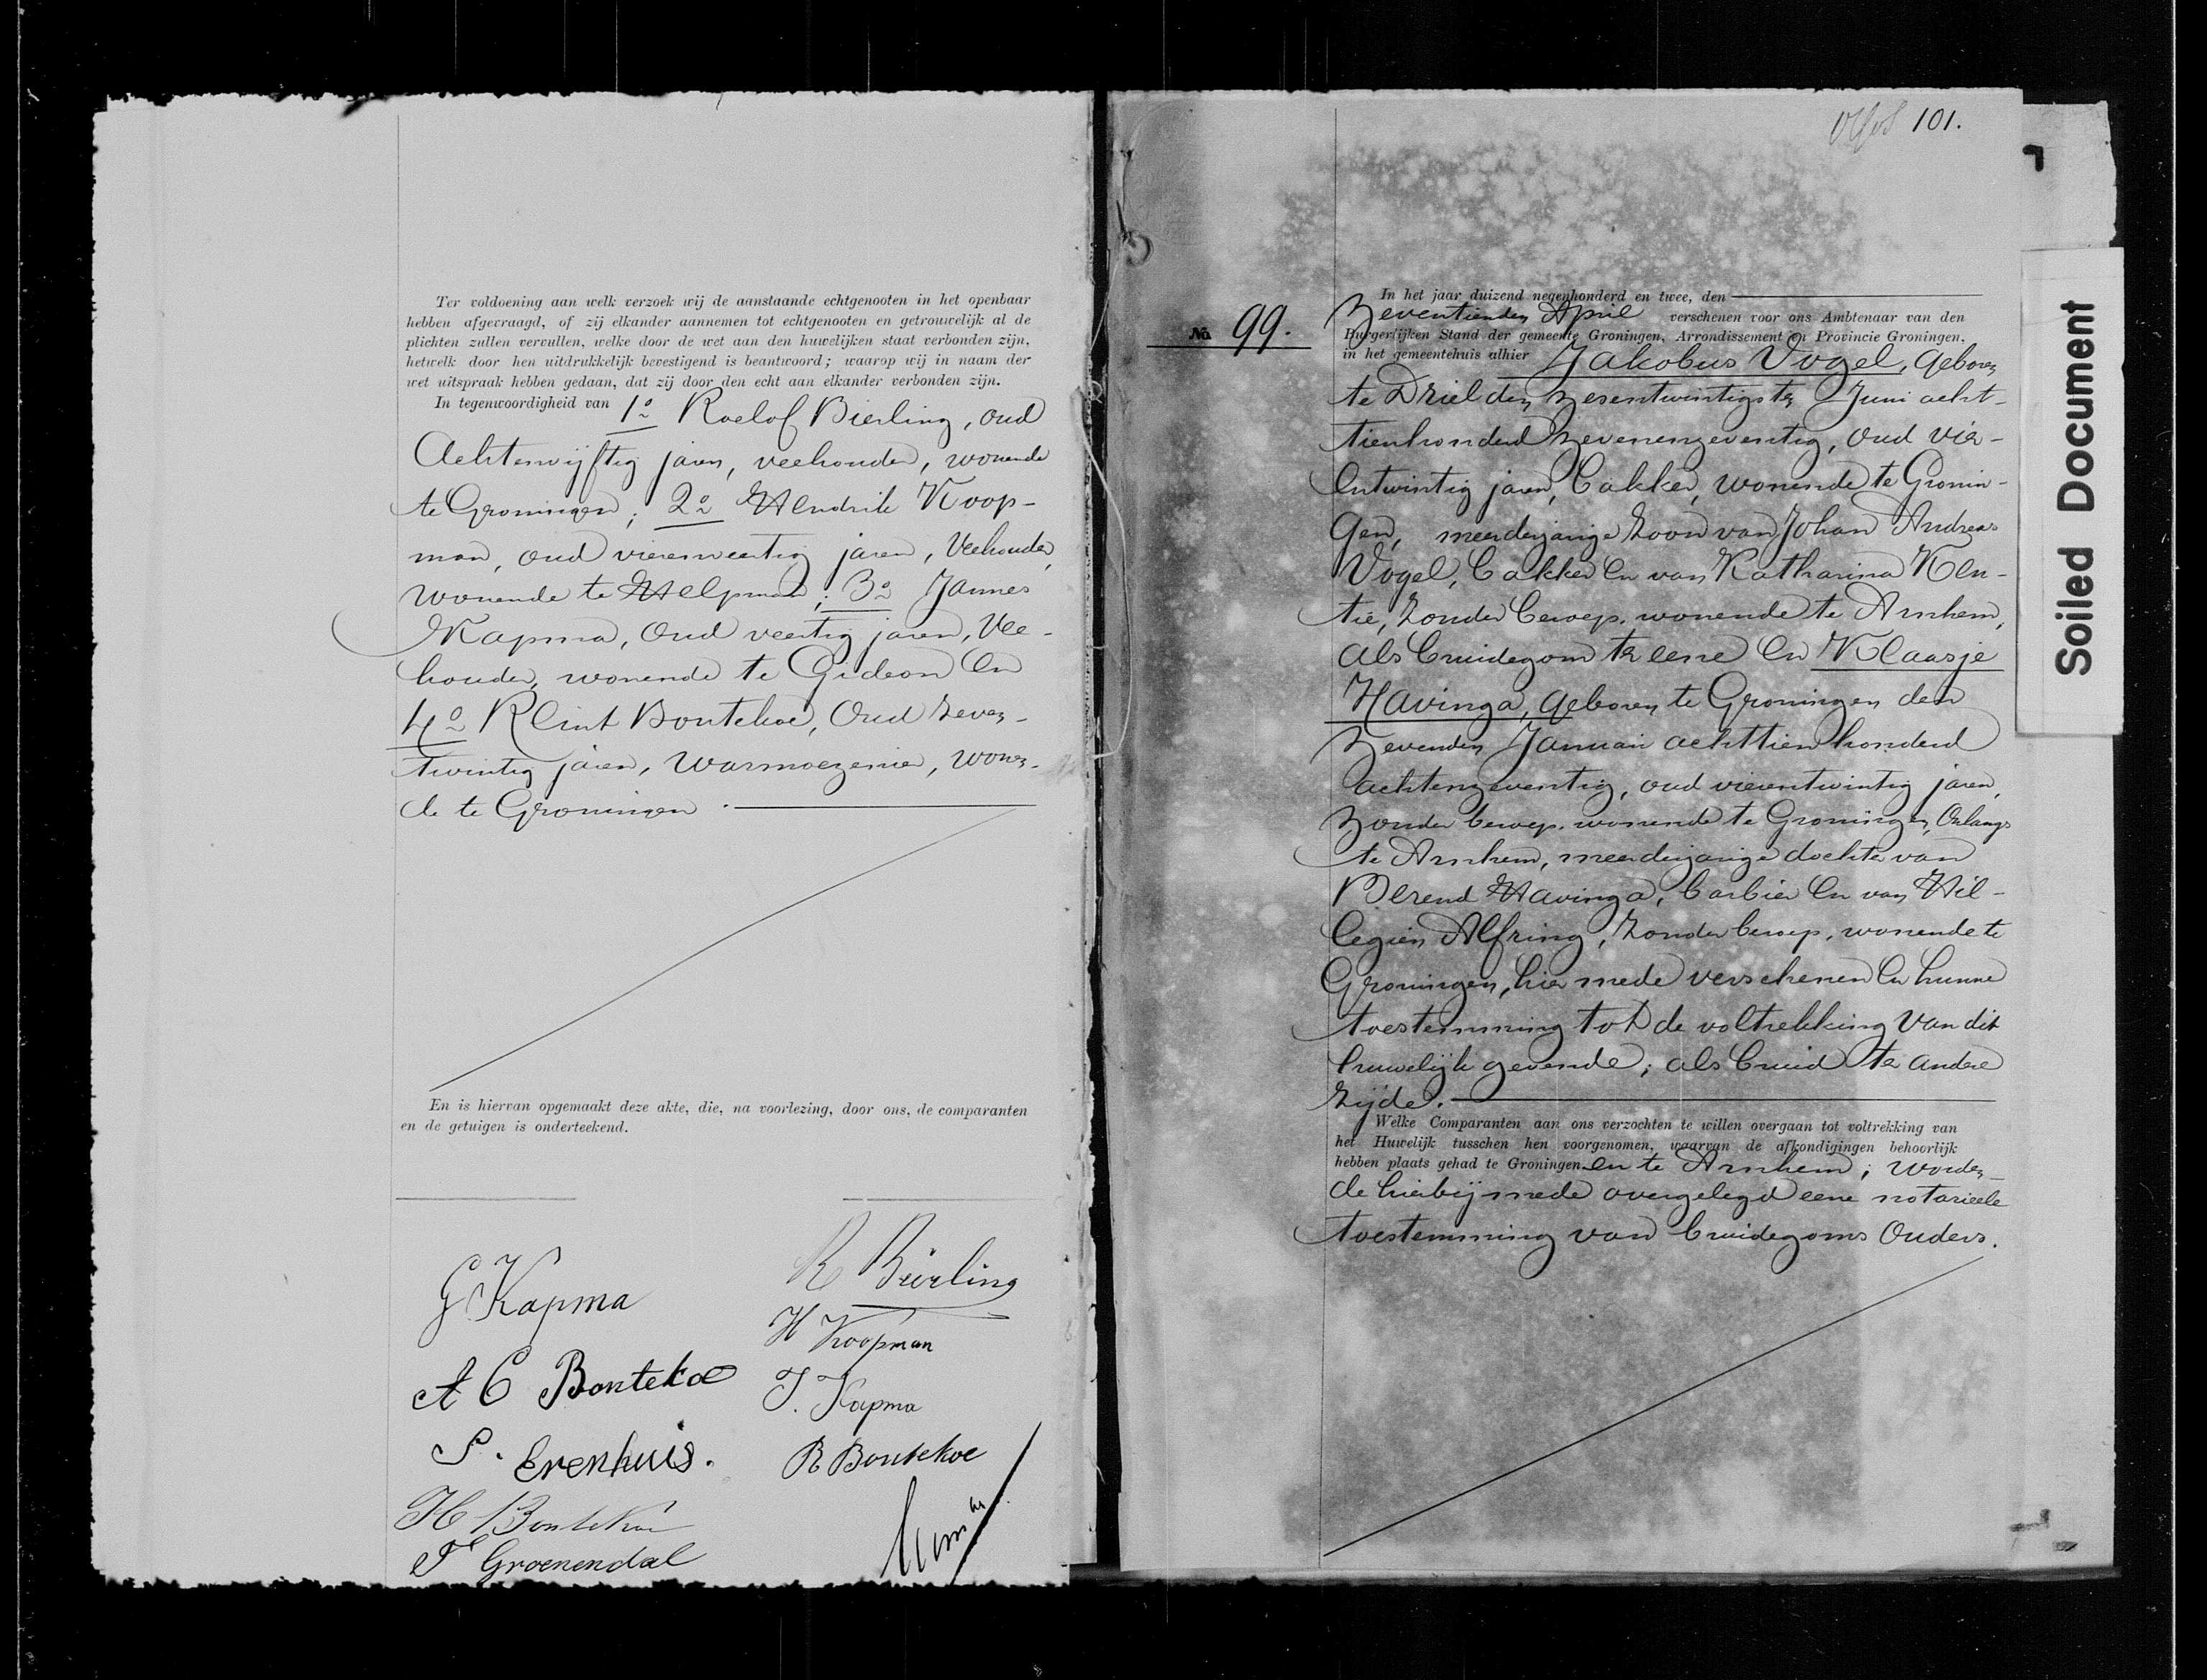 Ter voldoening aan welk verzoek wij de aanstaande echtgenooten in het openbaar
hebben afgevraagd, of zij elkander aannemen tot echtgenooten en getrouwelijk al de
plichten zullen vervullen, welke door de wet aan den huwelijken staat verbonden zijn,
hetwelk door hen uitdrukkelijk bevestigend is beantwoord; waarop wij in naam der
wet uitspraak hebben gedaan, dat zij door den echt aan elkander verbonden zijn.
In tegenwoordigheid van 1º Roelof Bierling, oud
Achtenvijftig jaren, veehouder, wonende
te Groningen; 2º Hendrik Koop-
man, oud vierenveertig jaren, Veehouder,
wonende te Helpman; 3º Jannes
Kapma, oud veertig jaren, Vee-
houder, wonende te Gideon en
4º Reint Bontekoe, oud zeven-
twintig jaren, Warmoezenier, wonen-
de te Groningen.
En is hiervan opgemaakt deze akte, die, na voorlezing, door ons, de comparanten
en de getuigen is onderteekend.
G Kapma
A C Bontekoe
S. Erenhuis.
H Bontekoe
F Groenendal
R Bierling
H Koopman
J. Kapma
R Bontekoe
101.
No 99.
In het jaar duizend negenhonderd en twee, den
Zeventienden April verschenen voor ons Ambtenaar van den
Burgerlijken Stand der gemeente Groningen, Arrondissement en Provincie Groningen,
in het gemeentehuis alhier Jakobus Vogel, geboren
te Driel den zesentwintigsten Juni acht-
tienhonderd zevenenzeventig, oud vier-
entwintig jaren, bakker, wonende te Gronin-
gen, meerderjarige zoon van Johan Andreas
Vogel, bakker en van Katharina Ken-
tie, zonder beroep, wonende te Arnhem,
als bruidegom ter eene en Klaasje
Havinga, geboren te Groningen den
zevenden Januari achttienhonderd
achtenzeventig, oud vierentwintig jaren,
zonder beroep, wonende te Groningen, Onlangs
te Arnhem, meerderjarige dochter van
Berend Havinga, barbier en van Hil-
legien Alfring, zonder beroep, wonende te
Groningen, hier mede verschenen en hunne
toestemming tot de voltrekking van dit
huwelijk gevende; als bruid ter andere
zijde.
Welke Comparanten aan ons verzochten te willen overgaan tot voltrekking van
het Huwelijk tusschen hen voorgenomen, waarvan de afkondigingen behoorlijk
hebben plaats gehad te Groningen en te Arnhem; worden-
de hierbij mede overgelegd eene notarieele
toestemming van bruidegoms Ouders.
Soiled Document